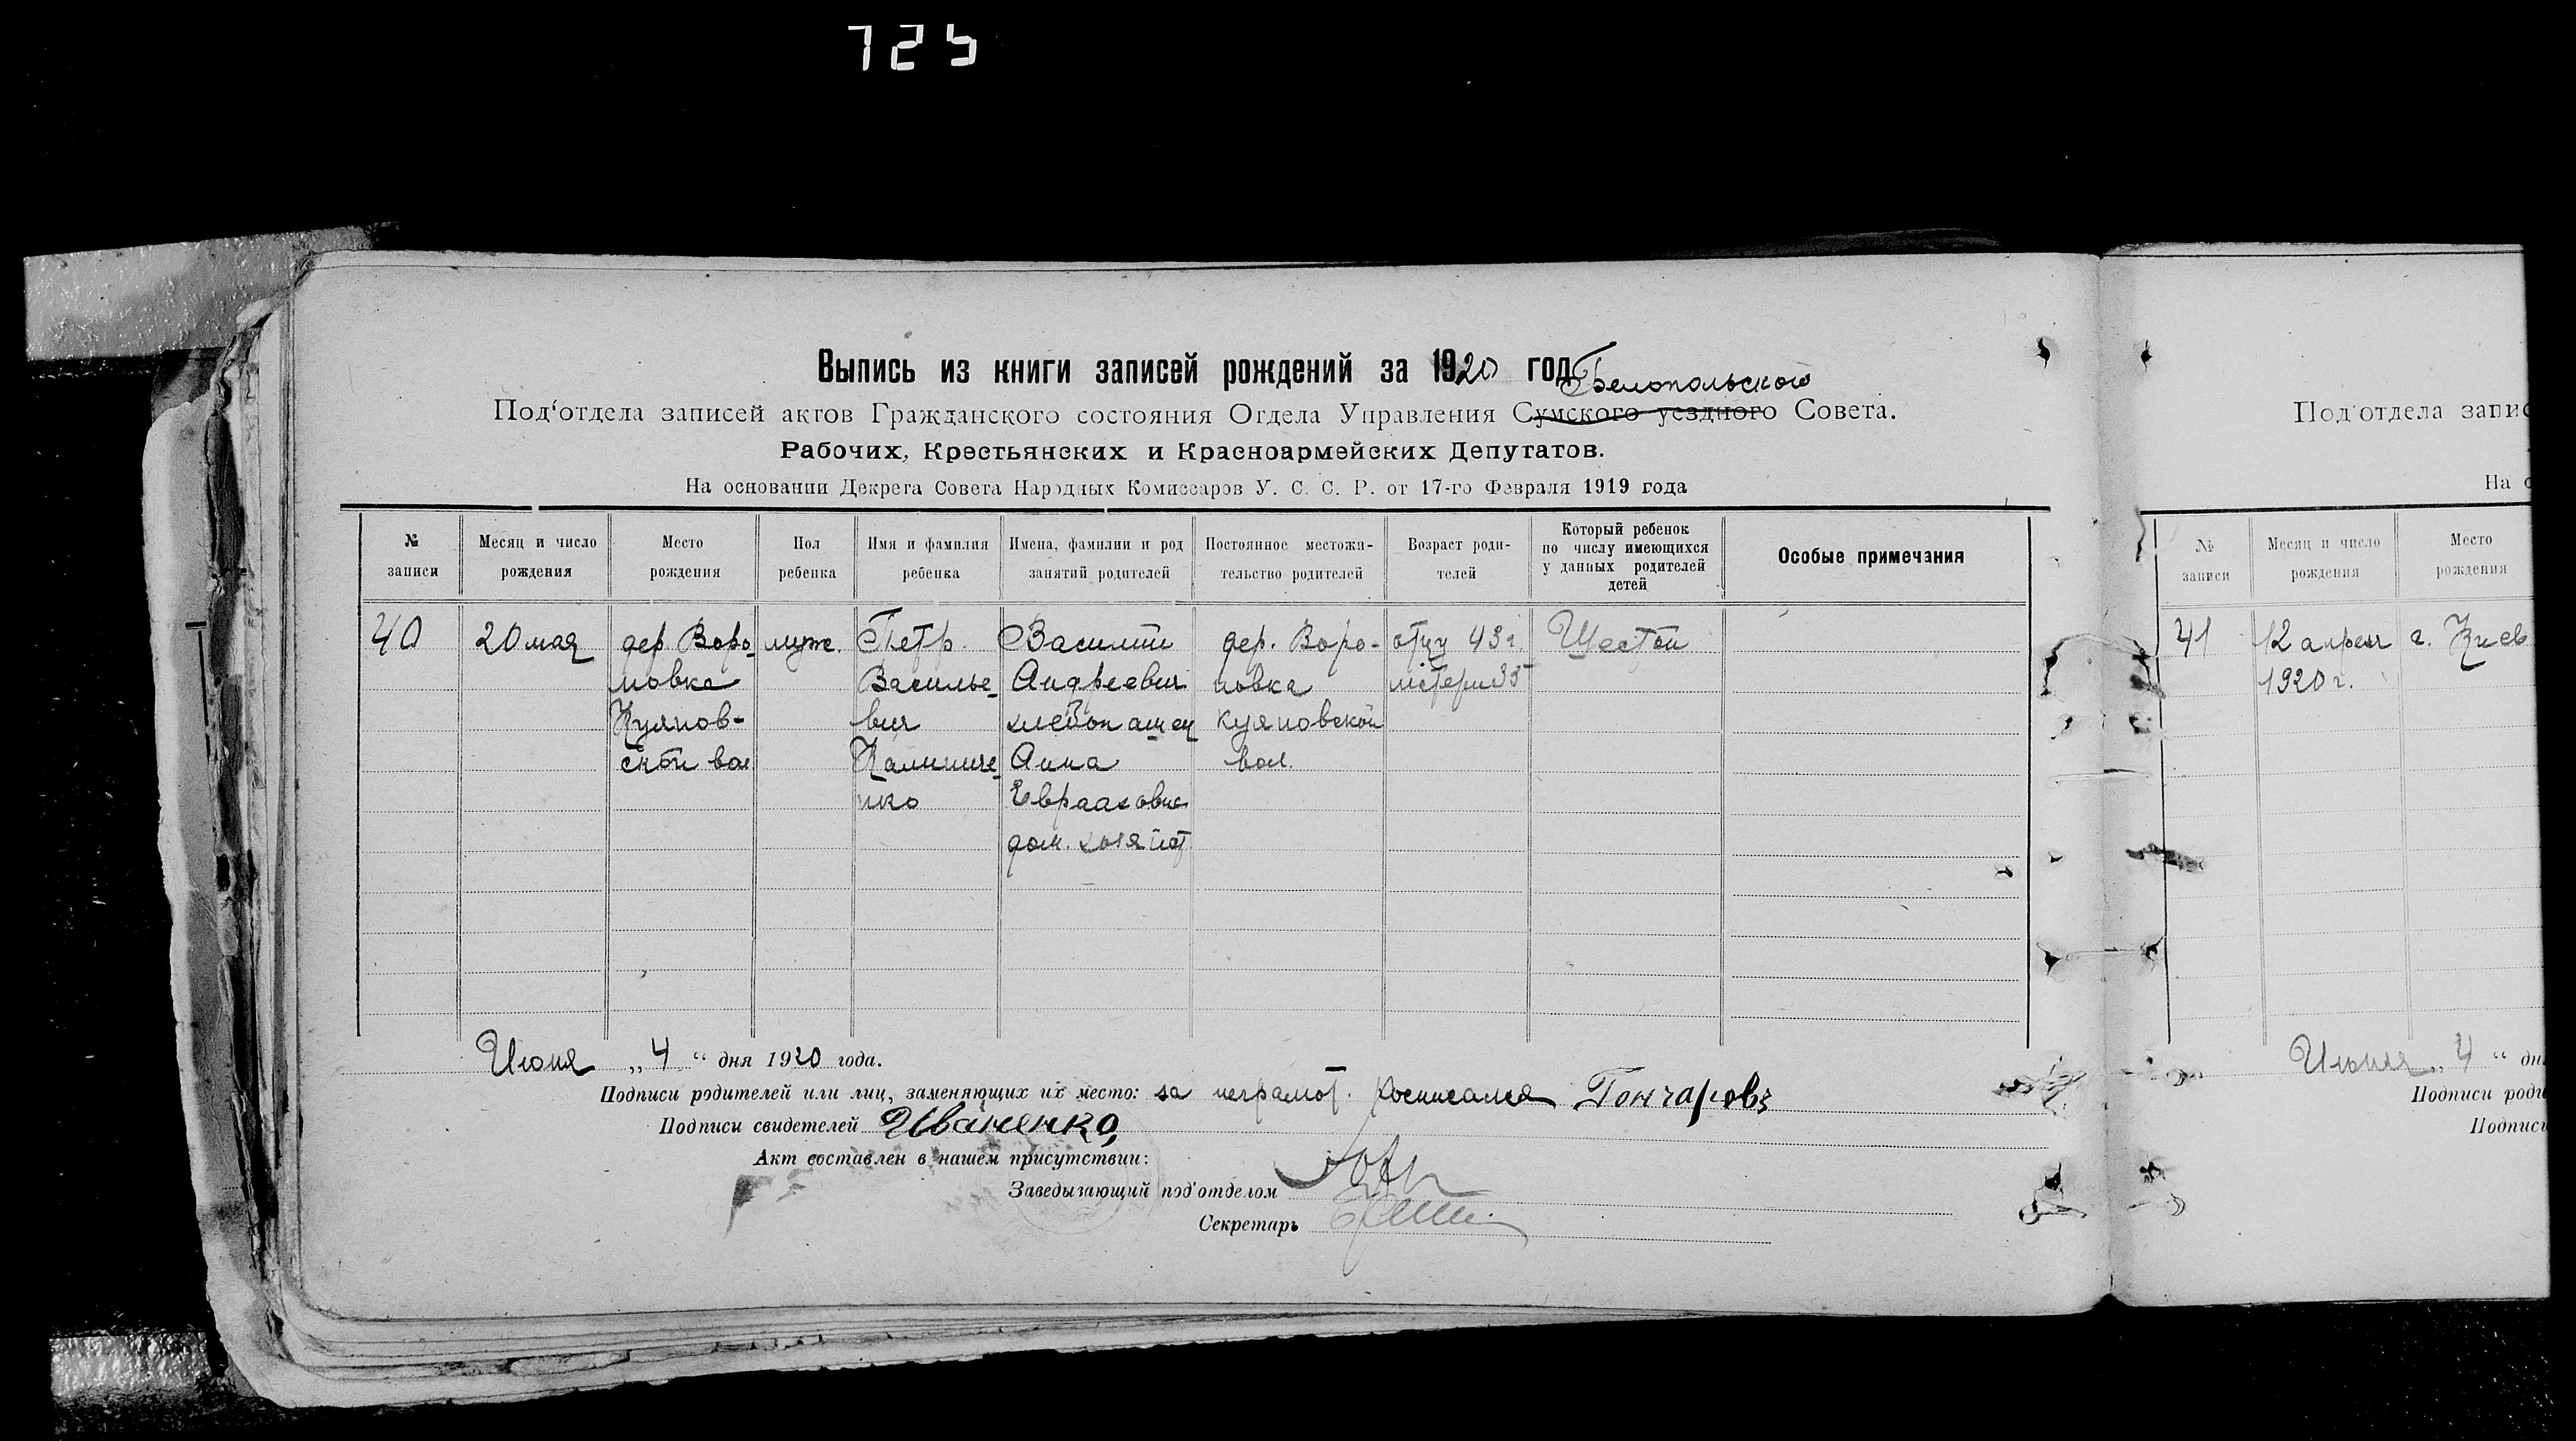 725
Выпись из книги записей рождений за 1920 год
Белопольского
Под‘отдела записей актов Гражданского состояния Отдела Управления Сумского уездного Совета.
Рабочих, Крестьянских и Красноармейских Депутатов.
На основании Декрета Совета Народных Комиссаров У. С. С. Р. от 17-го Февраля 1919 года
№ записи
Месяц и число рождения
Место рождения
Пол ребенка
Имя и фамилия ребенка
Имена, фамилии и род занятий родителей
Постоянное местожи-тельство родителей
Возраст роди-телей
Который ребенок по числу имеющихся у данных родителей детей
Особые примечания
40
20 мая
дер. Воро-
новка
Куянов-
ской вол
муж.
Петр
Василье-
вич
Калиниче-
нко
Василий
Андреевич
хлебопашец
Анна
дом. хозяйст
дер. Воро-
новка
Куяновской
вол.
отцу 43 г.
матери 35
Шестой
Июня „ 4 “ дня 1920 года.
Подписи родителей или лиц, заменяющих их место: за неграмот. росписался Гончаровъ
Подписи свидетелей Иваненко
Акт составлен в нашем присутствии:
Заведывающий под‘отделом
Секретарь
Под‘отдела запис
На о
№ записи
Месяц и число рождения
Место рождения
41
12 апреля
1920 г.
г. Киев
Июня „ 4 “ дн
Подписи роди
Подписи